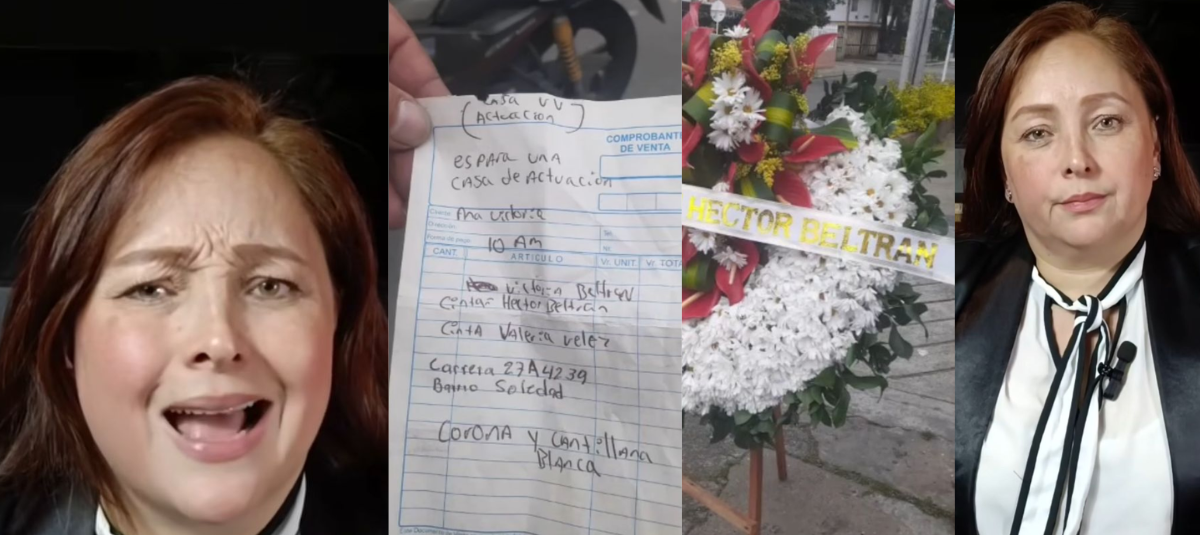 Casa VV
(Actuacion)
COMPROBANTE
DE VENTA
es PARA UNA
CASA de ACTUACION
Ana Victoria
10 AM
CANT.
ARTICULO
Vr. UNIT.
Vr. TOTA
Victoria Beltran
Cinta Hector Beltran
CintA Valeria velez
Carrera 27A 4239
Barrio Soledad
CORONA Y CANTillana
BlancA
HECTOR BELTRAN